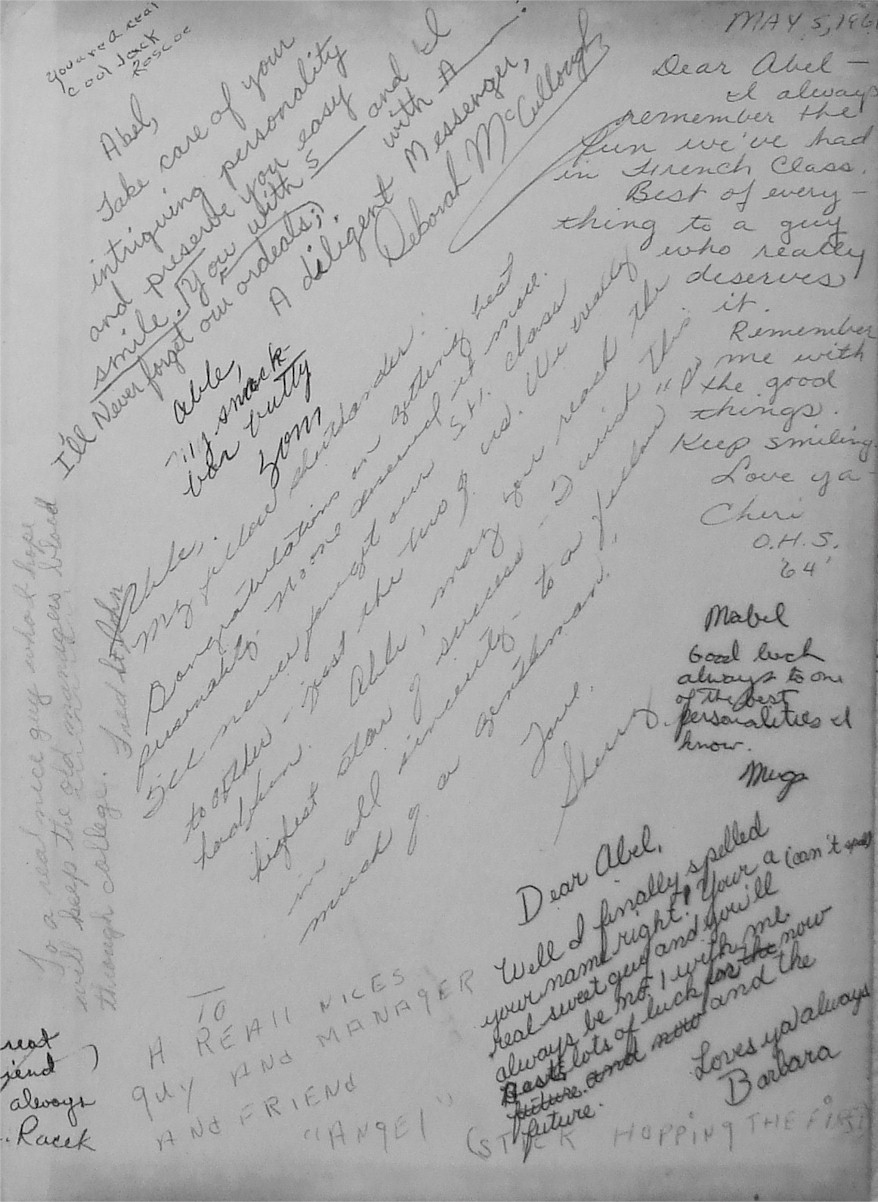 You are a real
cool Jack
Roscoe
Abel,
Take care of your
intriguing personality
and preserve you easy
smile. You with S and I
with A
I'll Never forget our ordeals;
A diligent Messenger,
Deborah McCullough
MAY 5, 196
Dear Abel –
I always
remember the
fun we've had
in French Class.
Best of every–
thing to a guy
who really
deserves
it.
Remember
me with
"P" the good
things.
Keep smiling
Love ya–
Cheri
O.H.S.
'64'
Able,
my snack–
bar butty
Tom
Able,
My fellow
Congratulations on getting best
personality. No one deserved it more.
I'll never forget our St. class
together – just the two of us. We really
had fun. Able, may you reach the
highest star of success – I wish this
in all sincerity – to a fellow
much of a gentleman.
Love,
Sherry
To a real nice guy who I hope
will keep the old managers blood
through college.
Mabel
Good luck
always to one
of the best
personalities I
know.
Mugs
Dear Abel,
Well I finally spelled
your name right! Your a (can't spell)
real sweet guy and you'll
always be no. 1 with me.
Best lots of luck for the now
future and now and the
future.
Loves ya always
Barbara
reat
iend
always
Racek
TO
A REAll NICES
guy ANd MANAgER
ANd FRIENd
"ANgEl"
HOPPINg THE FIRST